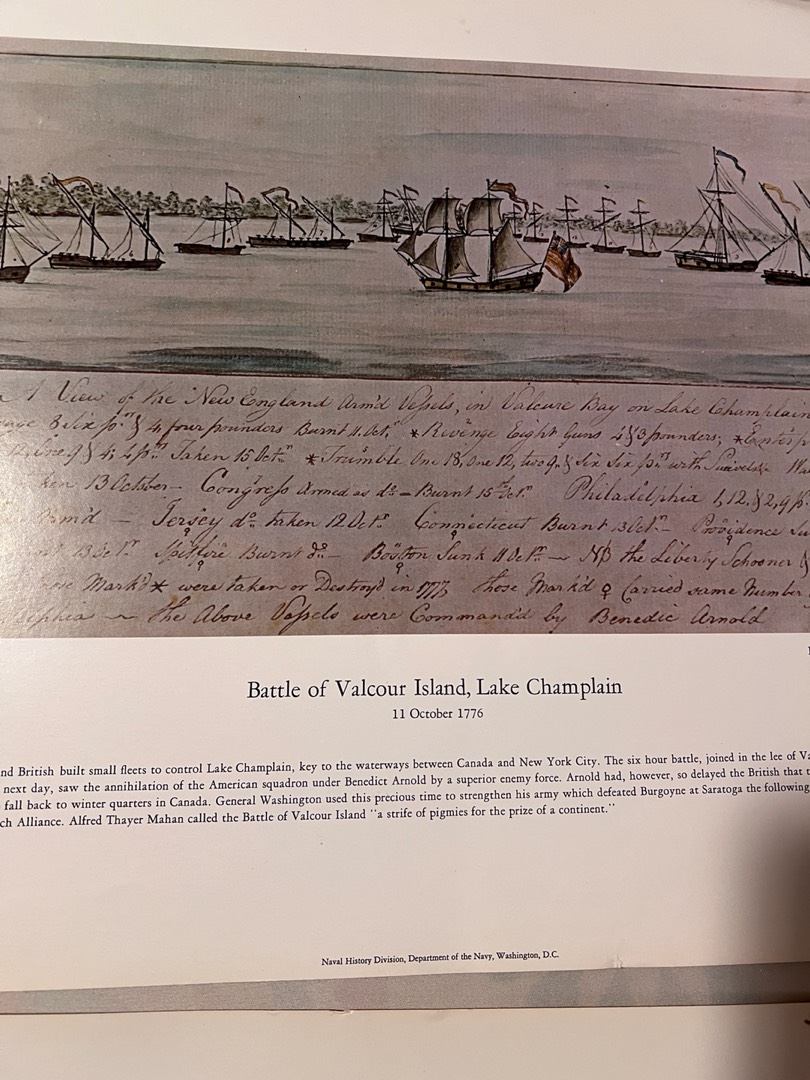 A View of the New England Arm'd Veſsels, in Valcure Bay on Lake Champlain
& six pr. & 4 four pounders Burnt 11. Octr. *Revenge Eight Guns 4 & 3 pounders; *Enterp
9 & 4, 4 prs. Taken 15 Octr. *Trumble One 18, One 12, two 9. & Six Six prs. with Swivels
13 October – Congreſs Armed as do – Burnt 15th Octr. Philadelphia 1, 12, & 2, 9 p.
Arm'd – Jersey do. taken 12 Octr. Connecticut Burnt 13 Octr. – Providence Su
13 Octr. Spitfire Burnt do. – Boston Sunk 11 Octr. – NB the Liberty Schooner &
Mark'd * were taken or Destroy'd in 1777, those Mark'd ♀ Carried same Number
delphia – the Above Veſsels were Command'd by Benedic Arnold
Battle of Valcour Island, Lake Champlain
11 October 1776
nd British built small fleets to control Lake Champlain, key to the waterways between Canada and New York City. The six hour battle, joined in the lee of Va
next day, saw the annihilation of the American squadron under Benedict Arnold by a superior enemy force. Arnold had, however, so delayed the British that t
fall back to winter quarters in Canada. General Washington used this precious time to strengthen his army which defeated Burgoyne at Saratoga the following
ch Alliance. Alfred Thayer Mahan called the Battle of Valcour Island "a strife of pigmies for the prize of a continent."
Naval History Division, Department of the Navy, Washington, D.C.